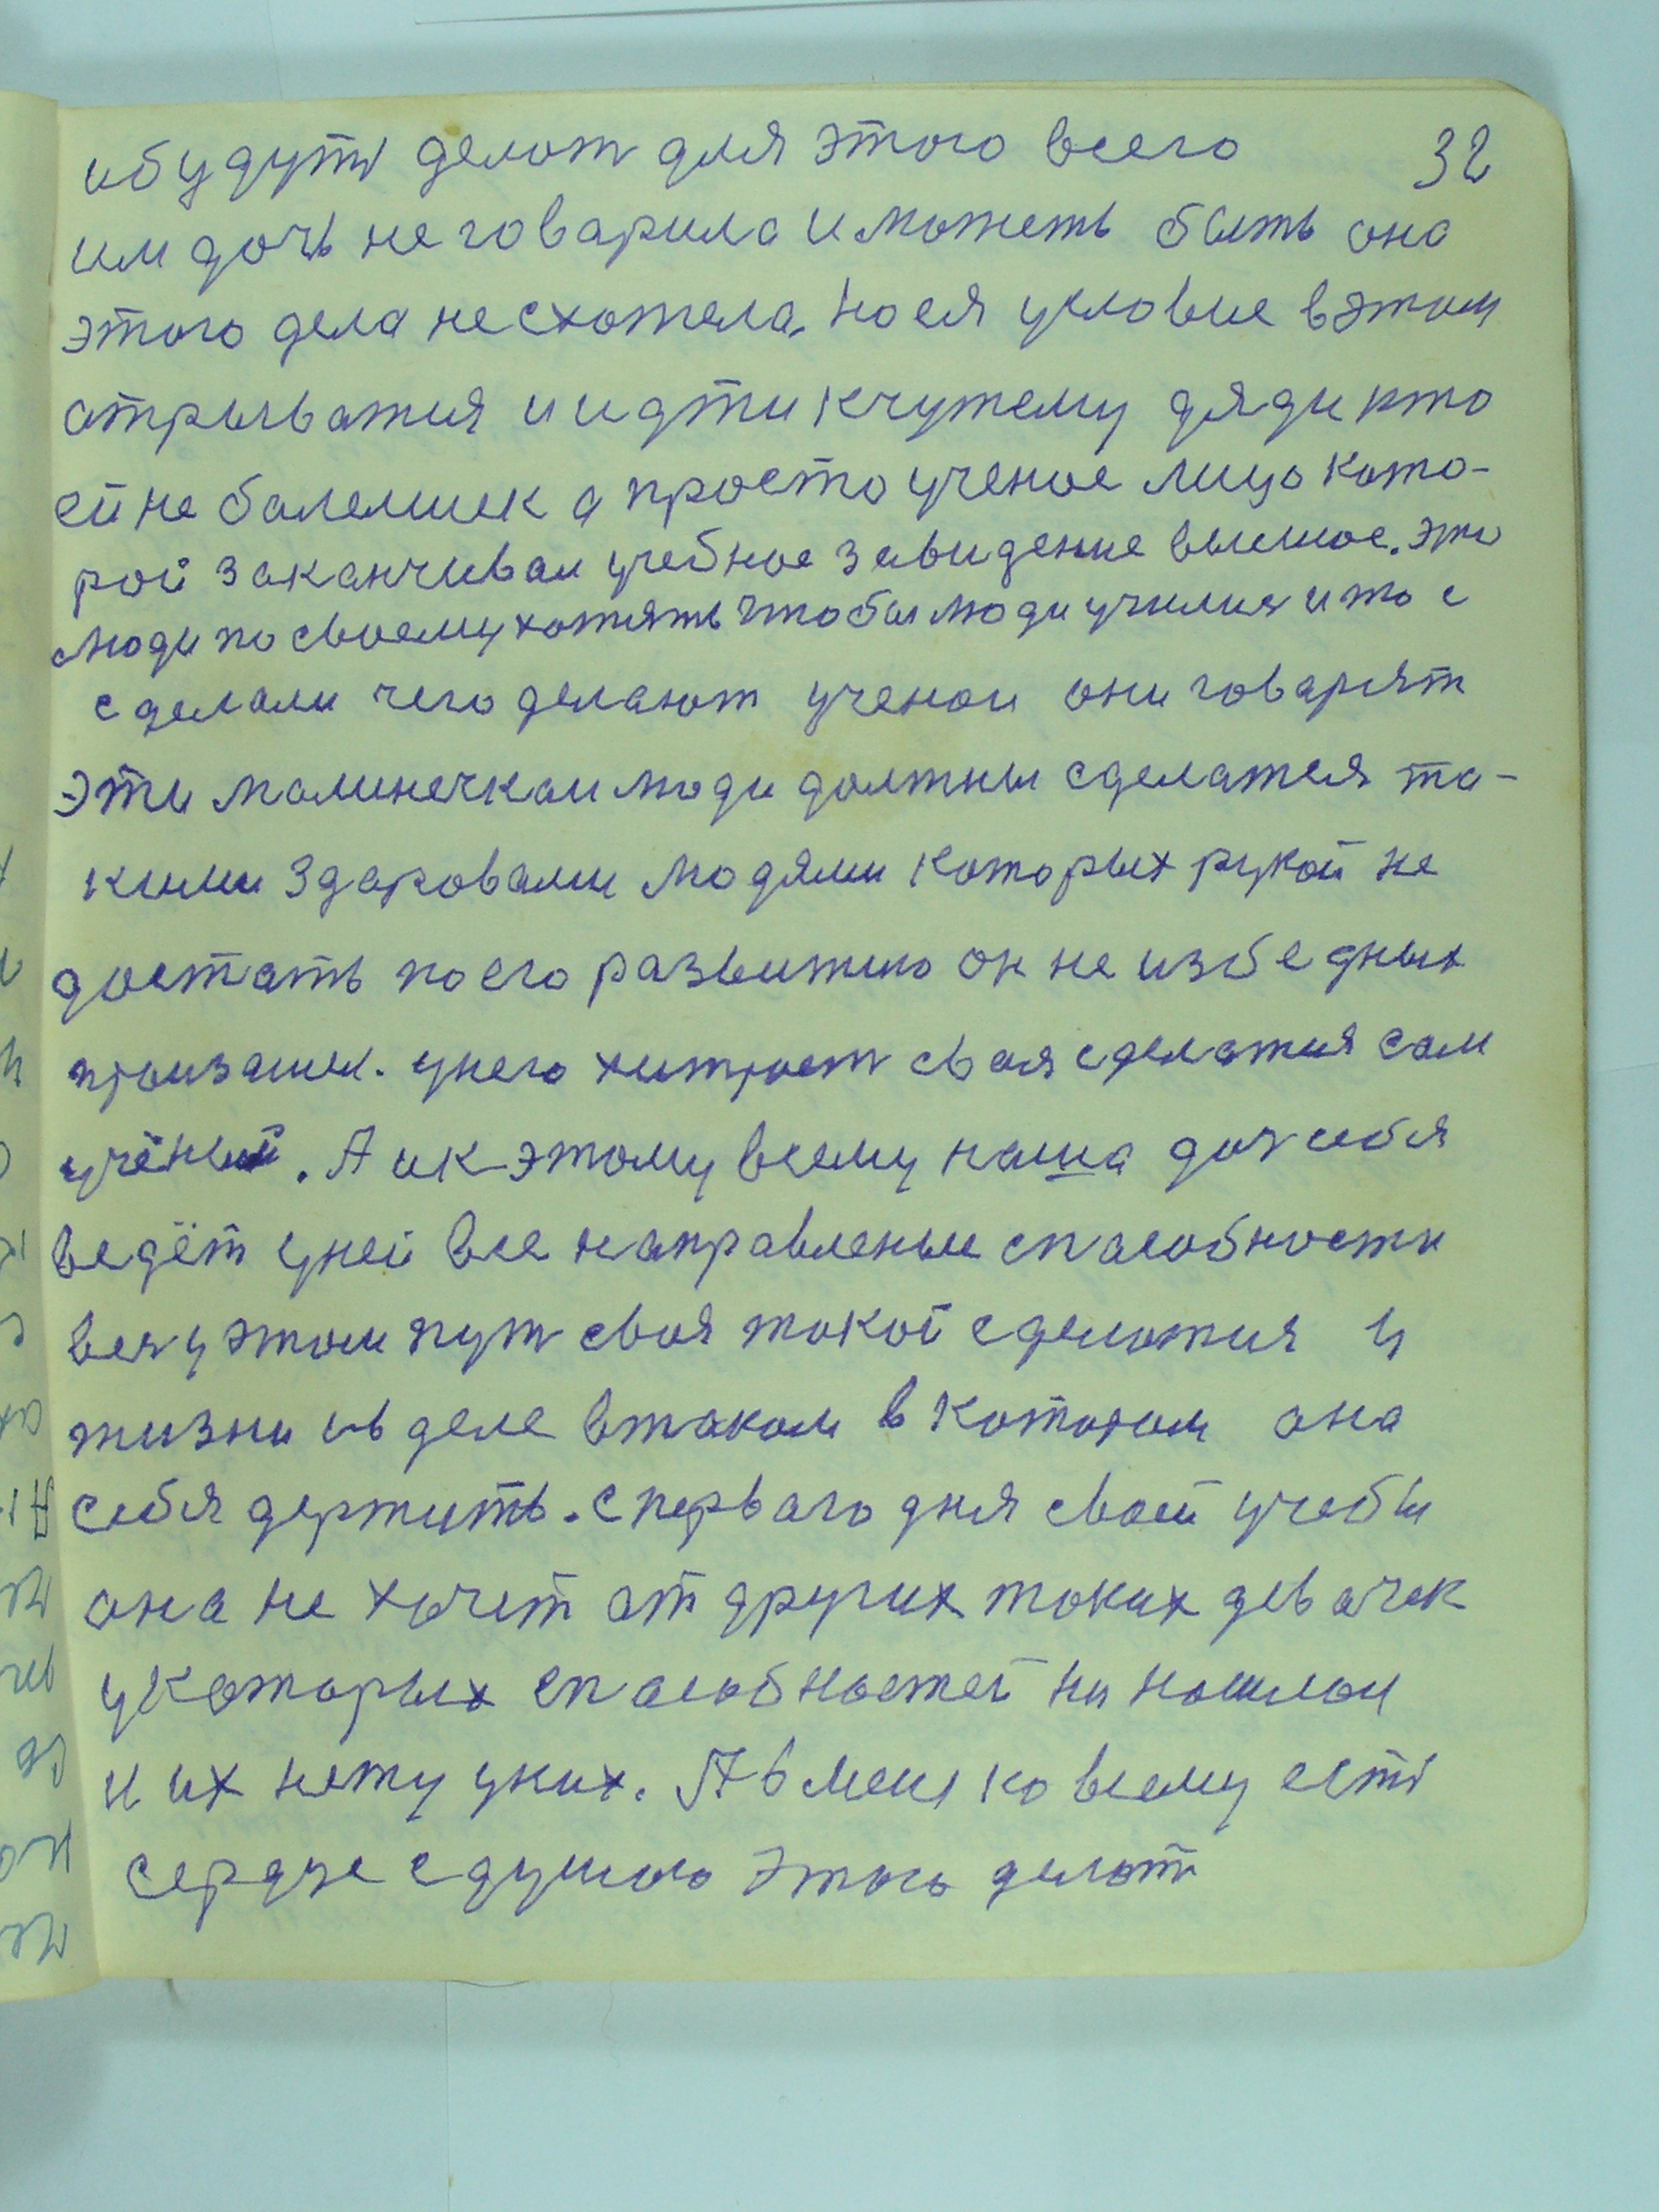 32
ибудуть делот для этого всего
им дочь не говарила иможеть быть она
этого дела не схотела. Но ея условие вэтом
атрыватия и идти кчужему дяди кто
ей не болемшек а просто ученое лицо кото-
рой заканчивал учебное завидение вышшое. эти
люди по своему хотять чтобы люди училися и то с
сделали чего делают ученои они говарят
эти малинечкаи люди должны сделатся та-
кими здаровами людями которых рукой не
достать по его развитию он не избедных
произашел. унего хитрост своя сделатия сам
учёный. А ик этому всему наша доч себя
ведёт уней все направленые спасобности
вея у этом пут своя токой сделотия у
жизни ив деле втаком в котором она
себя держить. с перваго дня своей учебы
она не хочет от других токих девачек
укоторых спасобностей ни нашлои
и их нету уних. А в мене ко всему есть
сердце сдушою этого делоть